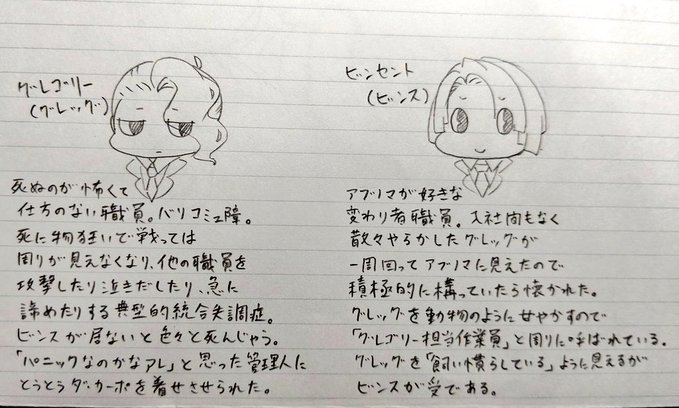 グレゴリー
(グレッグ)
死ぬのが怖くて
仕方のない職員。バリコミュ障。
死に物狂いで戦っては
周りが見えなくなり、他の職員を
攻撃したり泣きだしたり、急に
諦めたりする典型的統合失調症。
ビンスが居ないと色々と死んじゃう。
「パニックなのかなアレ」と思った管理人に
とうとうダ・カーポを着せさせられた。
ビンセント
(ビンス)
アブノマが好きな
変わり者職員。入社間もなく
散々やらかしたグレッグが
一周回ってアブノマに見えたので
積極的に構っていたら懐かれた。
グレッグを動物のように甘やかすので
「グレゴリー担当作業員」と周りに呼ばれている。
グレッグを「飼い慣らしている」ように見えるが
ビンスが受である。